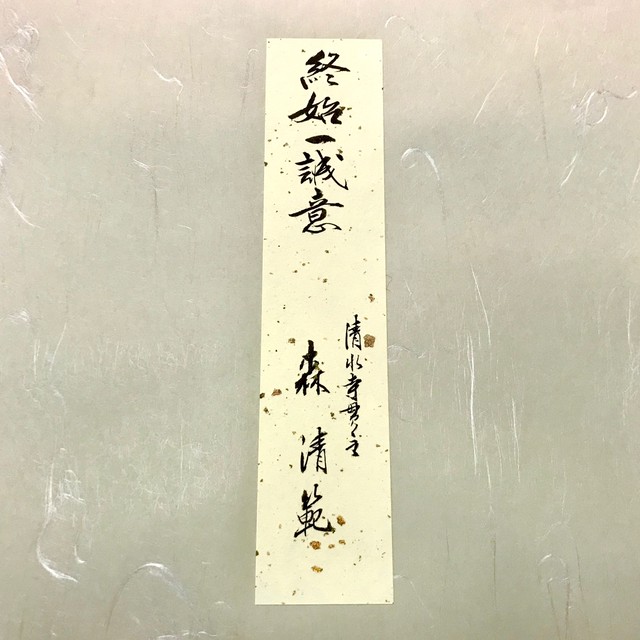 終始一誠意
清水寺貫主
森清範